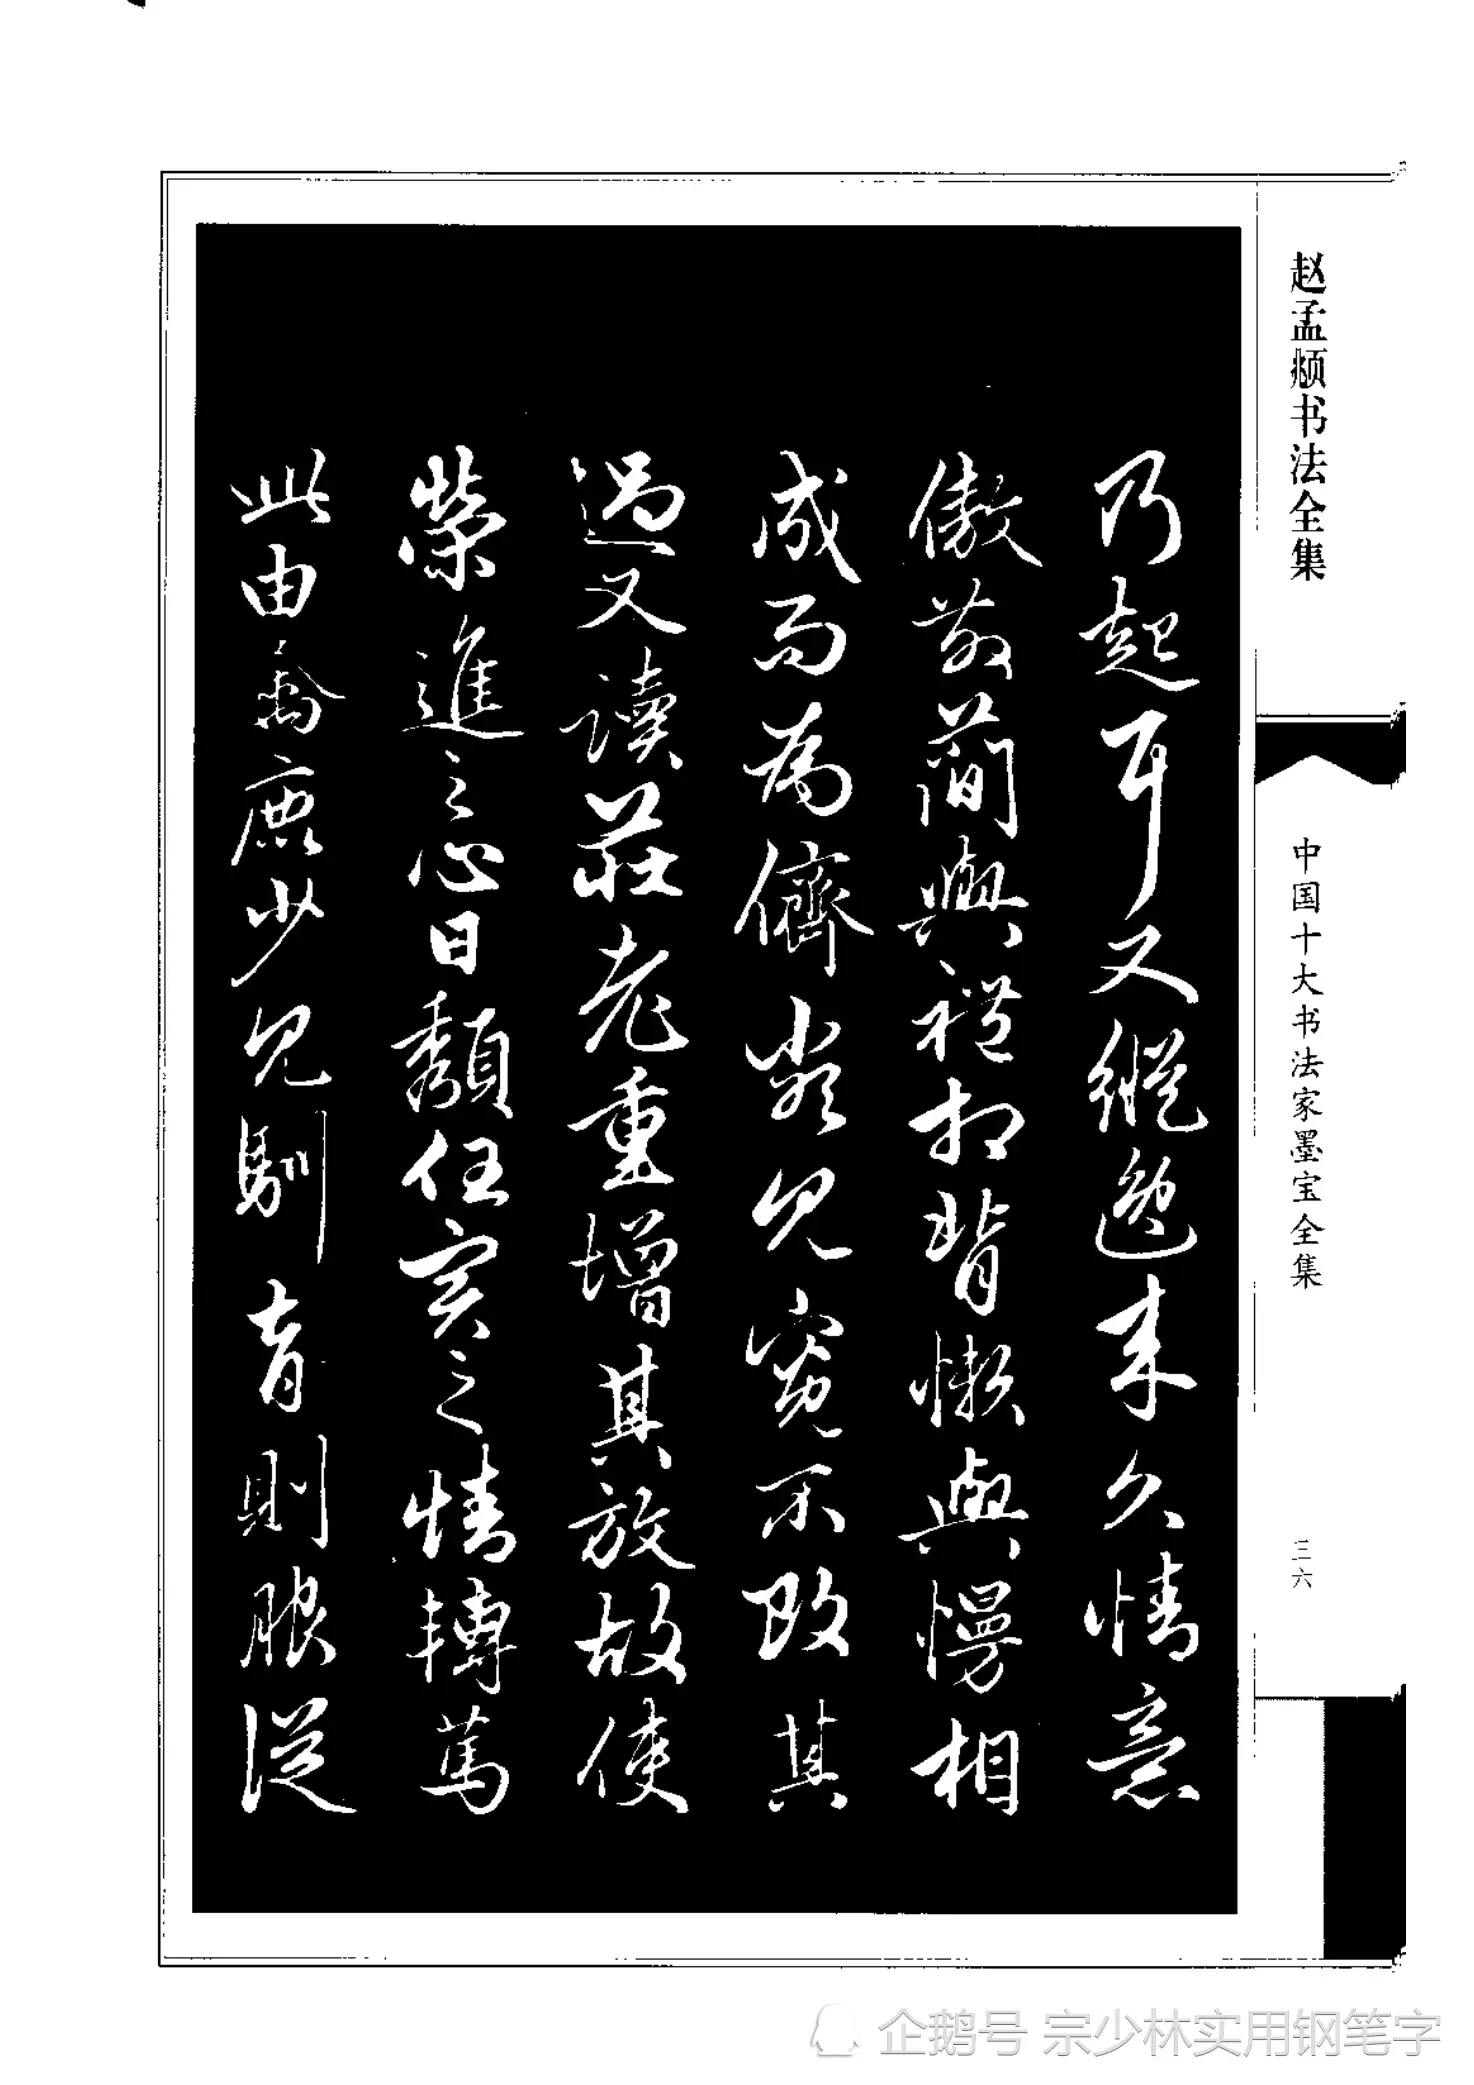 赵孟頫书法全集
中国十大书法家墨宝全集
三六
乃起耳又縱逸来久情意
傲散簡與禮相背懶與慢相
成而為儕類見寬不攻其
過又讀莊老重增其放故使
榮進之心日頹任實之情轉篤
此由禽鹿少見馴育則服從
企鹅号 宗少林实用钢笔字